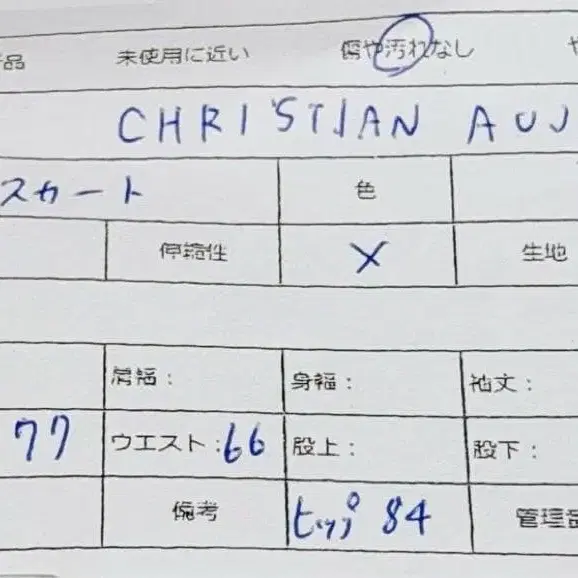 品 未使用に近い 傷や汚れなし や
CHRISTIAN AUJ
スカート 色
伸縮性 × 生地
肩幅: 身幅: 袖丈:
77 ウエスト:66 股上: 股下:
備考 ヒップ 84 管理番